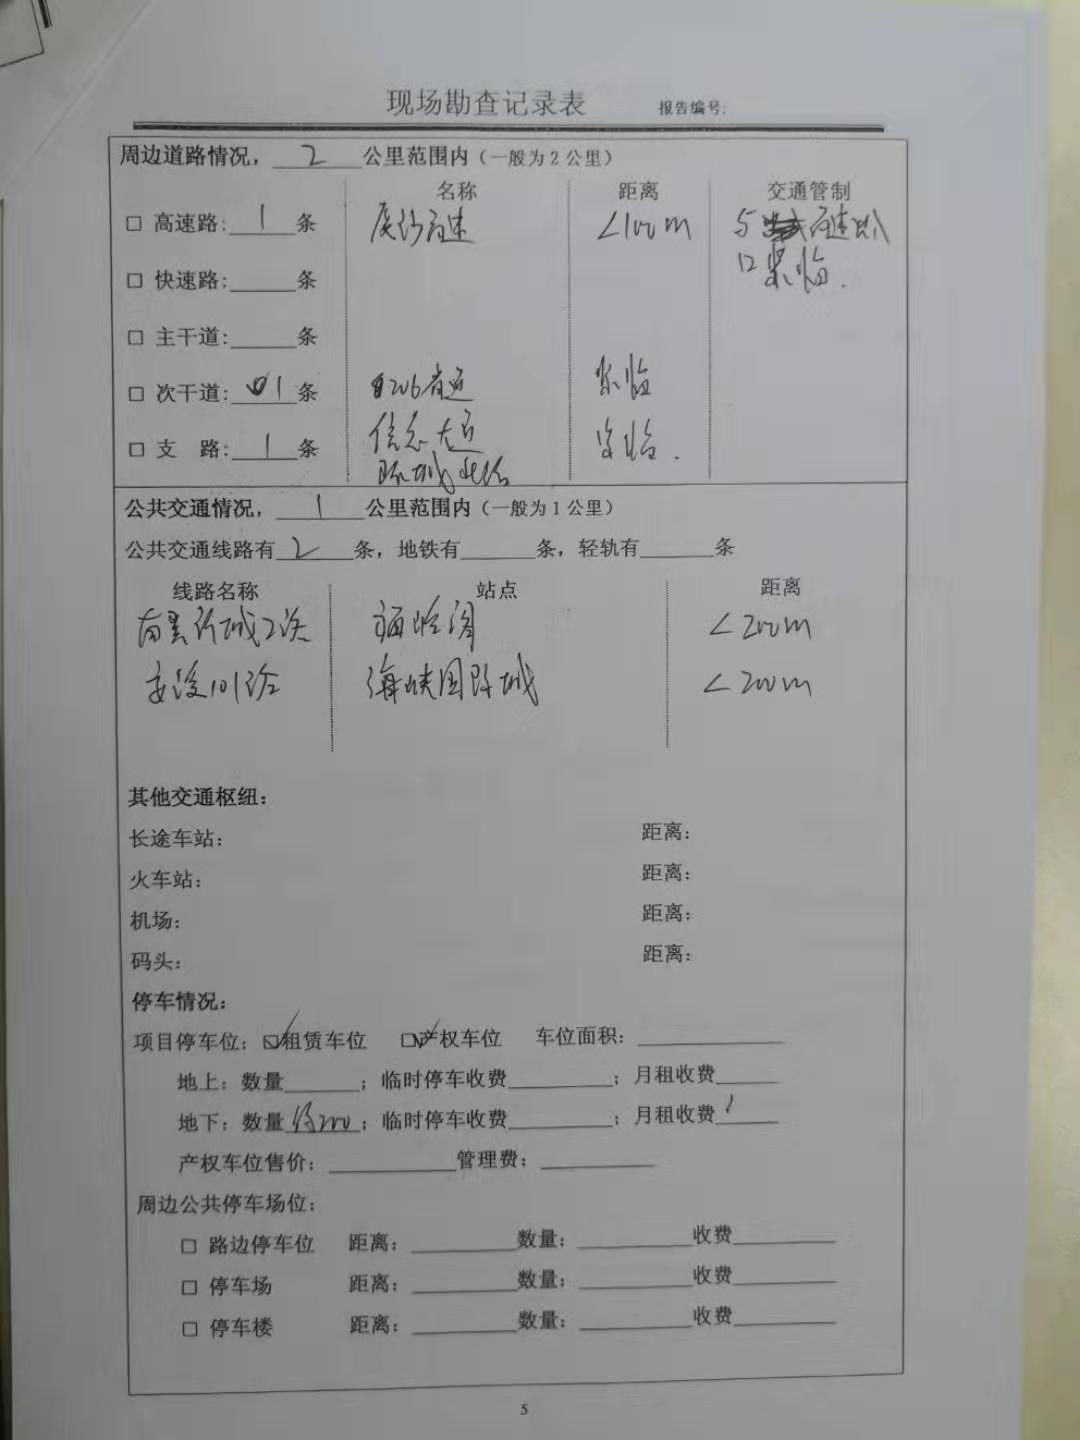 现场勘查记录表 报告编号:
周边道路情况, 2 公里范围内(一般为2公里)
名称 距离 交通管制
□ 高速路: 1 条 高速 <100m 与 高速出入
口紧临.
□ 快速路: 条
□ 主干道: 条
□ 次干道: 1 条 206省道 紧临
□ 支 路: 1 条 信息大道 紧临.
环城北路
公共交通情况, 1 公里范围内(一般为1公里)
公共交通线路有 2 条, 地铁有 条, 轻轨有 条
线路名称 站点 距离
城2路 <200m
101路 海峡国际城 <200m
其他交通枢纽:
长途车站: 距离:
火车站: 距离:
机场: 距离:
码头: 距离:
停车情况:
项目停车位: ☑租赁车位 ☑产权车位 车位面积:
地上: 数量 ; 临时停车收费 ; 月租收费
地下: 数量 约200 ; 临时停车收费 ; 月租收费
产权车位售价: 管理费:
周边公共停车场位:
□ 路边停车位 距离: 数量: 收费
□ 停车场 距离: 数量: 收费
□ 停车楼 距离: 数量: 收费
5